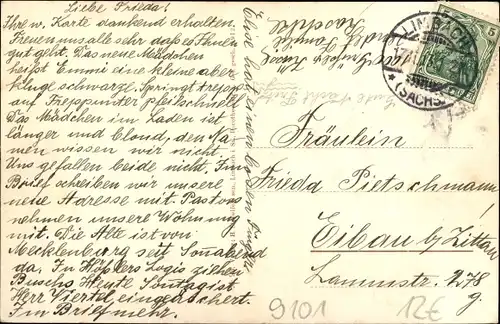 Liebe Frieda!
Ihre w. Karte dankend erhalten.
Freuen uns alle sehr daß es Ihnen
gut geht. Das neue Mädchen
heißt Emmi eine kleine aber
kluge schwarze. Springt trepp
auf Treppunter pfeilschnell.
Das Mädchen im Laden ist
länger und blond, den Na-
men wissen wir nicht.
Uns gefallen beide nicht. Im
Brief schreiben wir unsere
neue Adresse mit Pastons
nehmen unsere Wohnung
mit. Die Alte ist von
Mecklenburg seit Sonnabend
da. In Höflers Logis ziehen
Buschs. Heute Sonntag ist
Herr Viertel eingeäschert.
Im Brief mehr.
Else hat einen bösen Finger
LIMBACH
(SACHS.)
5
Fräulein
Frieda Pietschmann
Eibau b/Zittau
278
g.
9101
12€